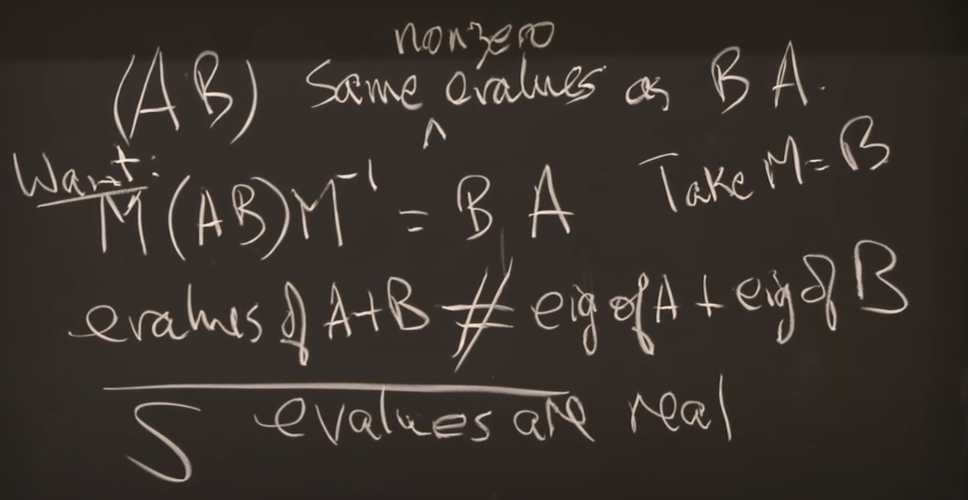 nonzero
(AB) Same ^ evalues as BA.
Want: M(AB)M⁻¹ = BA Take M=B
evalues of A+B ≠ eig of A + eig of B
S evalues are real